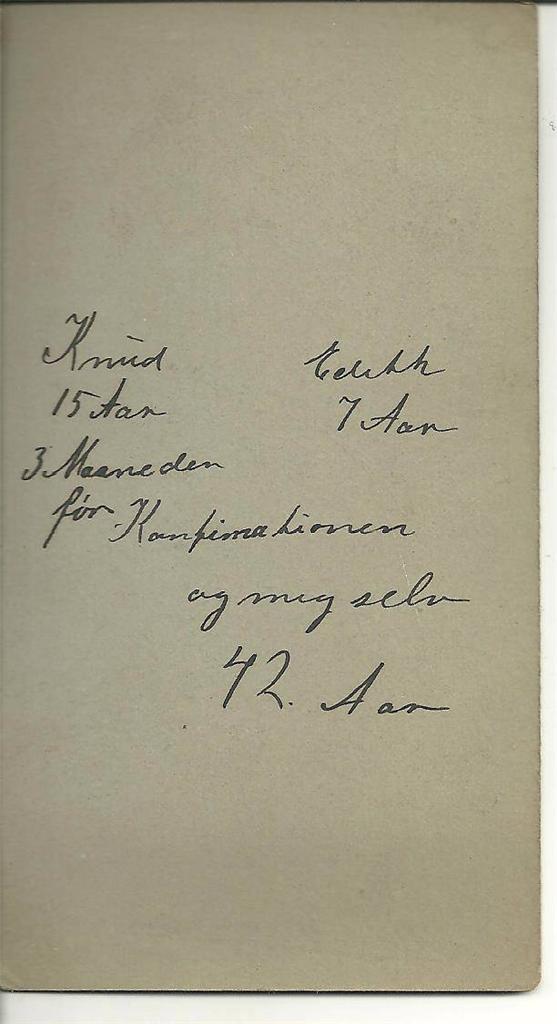 Knud Edith
15 Aar 7 Aar
3 Maaneden
før Konfimationen
og mig selv
42. Aar